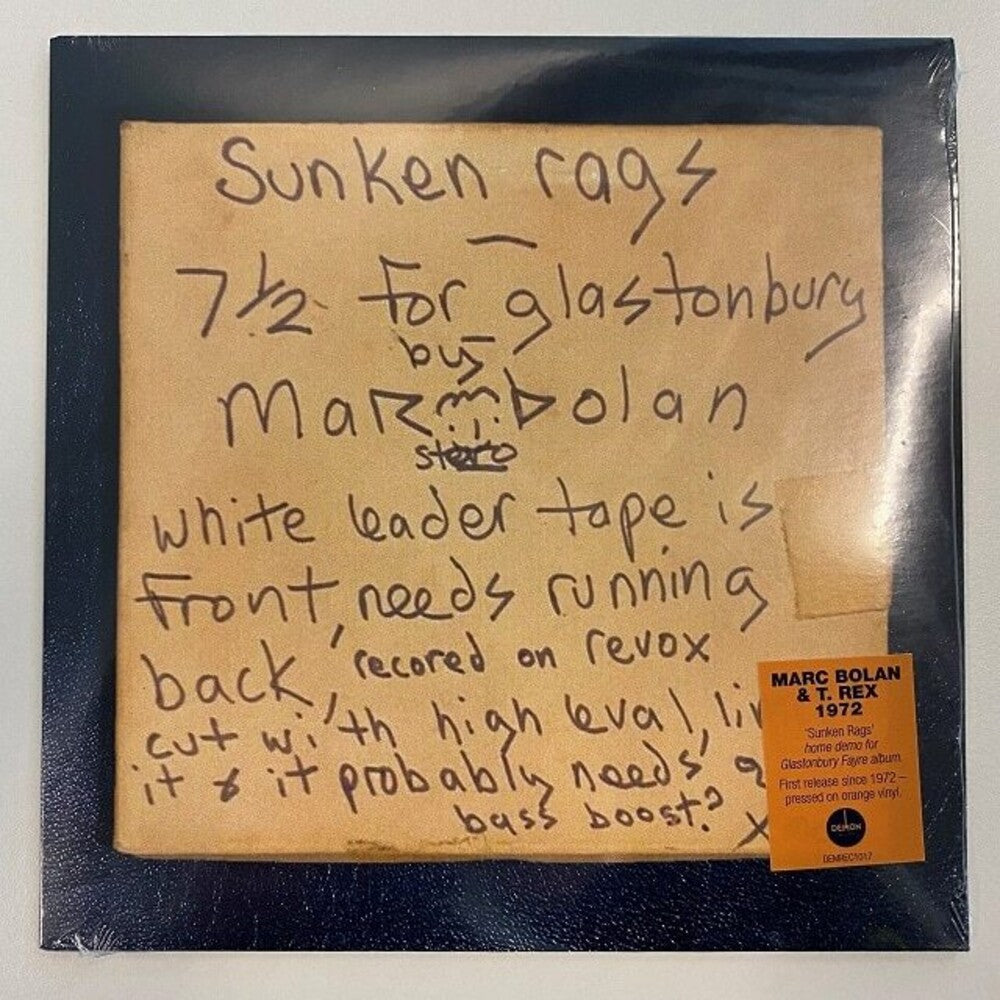 Sunken rags
—
7 1/2 for glastonbury
by
MaRc bolan
stero
white leader tape is
front, needs running
back, recored on revox
cut with high leval, li
it & it probably needs a
bass boost?
x
MARC BOLAN
& T. REX
1972
'Sunken Rags'
home demo for
Glastonbury Fayre album
First release since 1972 –
pressed on orange vinyl.
DEMON
DEMREC1017